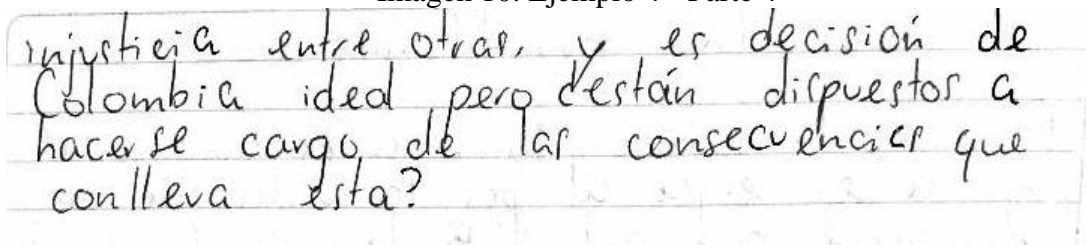 injusticia entre otras, y es decisión de
Colombia ideal pero ¿están dispuestos a
hacerse cargo, de las consecuencias que
conlleva ésta?